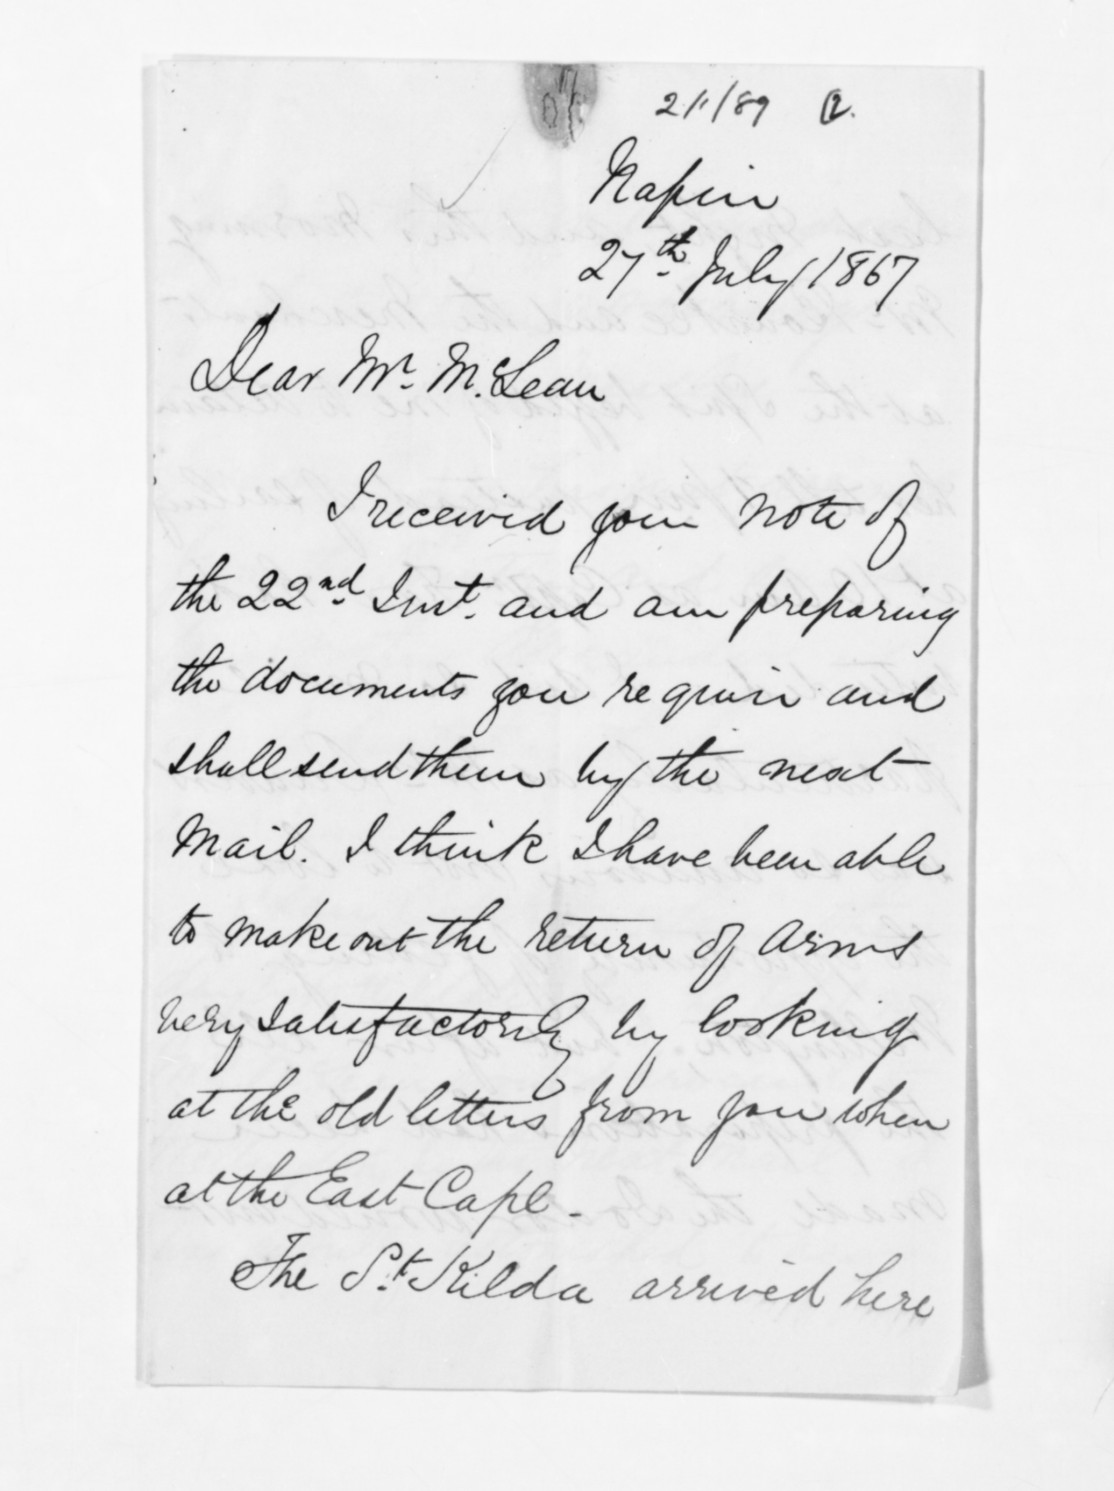 21/1/89 2.
Napier
27th July 1867
Dear Mr. McLean
I received your note of
the 22nd Inst. and am preparing
the documents you require and
shall send them by the next
Mail. I think I have been able
to make out the return of Arms
very satisfactorily by looking
at the old letters from you when
at the East Cape -
The St. Kilda arrived here